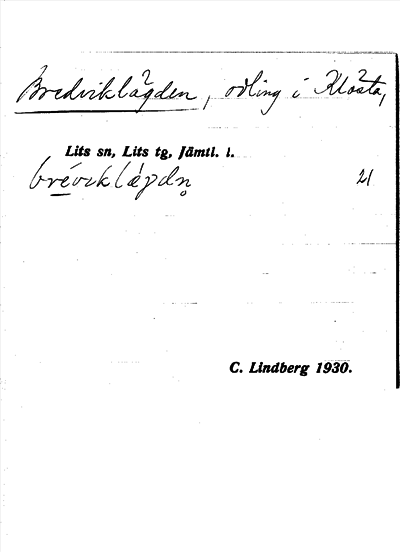 Bredviklägden, odling i Klösta,
Lits sn, Lits tg, Jämtl. l.
21
C. Lindberg 1930.